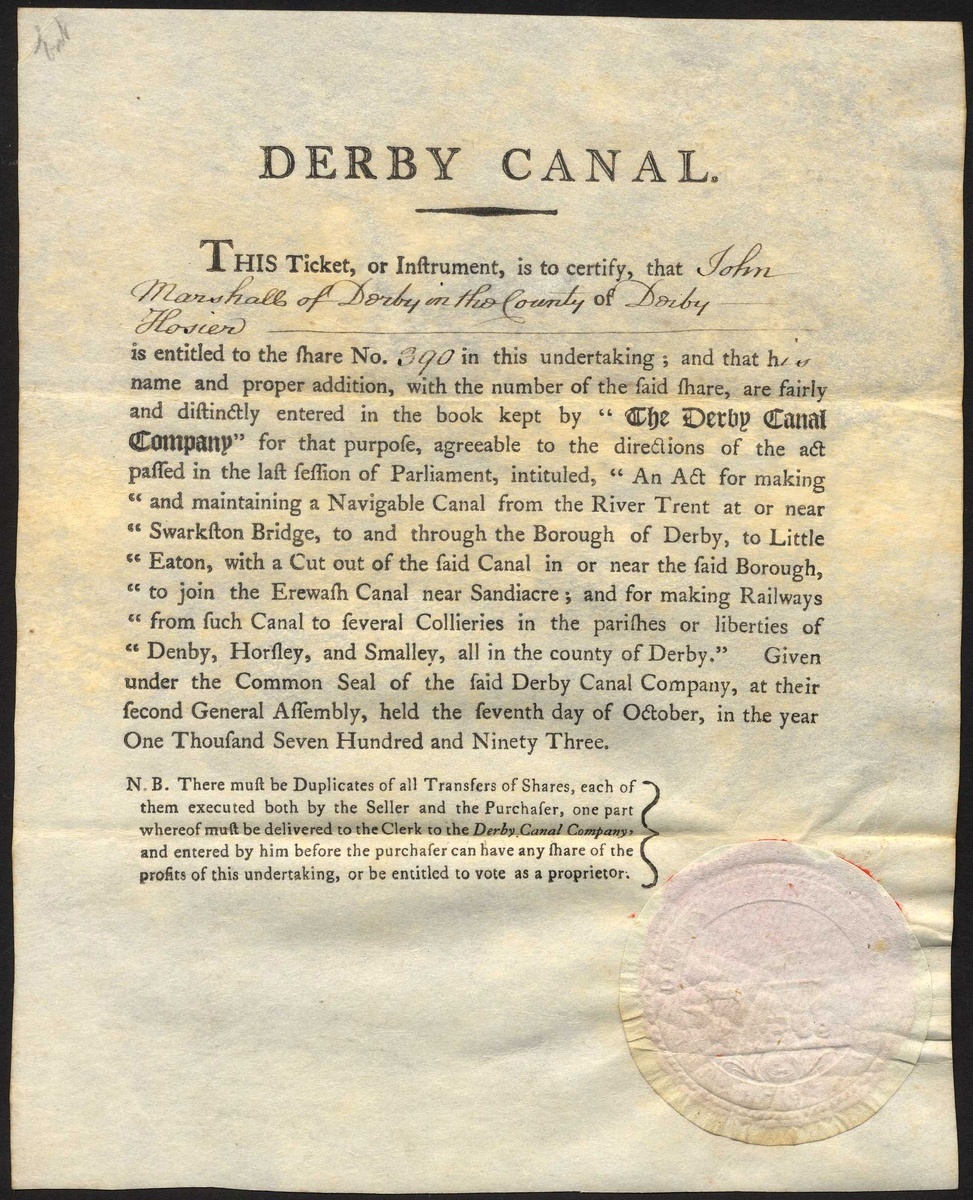 DERBY CANAL.
THIS Ticket, or Inſtrument, is to certify, that John
Marshall of Derby in the County of Derby
Hosier
is entitled to the ſhare No. 390 in this undertaking ; and that his
name and proper addition, with the number of the ſaid ſhare, are fairly
and diſtinctly entered in the book kept by “ The Derby Canal
Company” for that purpoſe, agreeable to the directions of the act
paſſed in the laſt ſeſſion of Parliament, intituled, “ An Act for making
“ and maintaining a Navigable Canal from the River Trent at or near
“ Swarkſton Bridge, to and through the Borough of Derby, to Little
“ Eaton, with a Cut out of the ſaid Canal in or near the ſaid Borough,
“ to join the Erewaſh Canal near Sandiacre ; and for making Railways
“ from ſuch Canal to ſeveral Collieries in the pariſhes or liberties of
“ Denby, Horſley, and Smalley, all in the county of Derby.” Given
under the Common Seal of the ſaid Derby Canal Company, at their
ſecond General Aſſembly, held the ſeventh day of October, in the year
One Thouſand Seven Hundred and Ninety Three.
N. B. There muſt be Duplicates of all Transfers of Shares, each of
them executed both by the Seller and the Purchaſer, one part
whereof muſt be delivered to the Clerk to the Derby Canal Company,
and entered by him before the purchaſer can have any ſhare of the
profits of this undertaking, or be entitled to vote as a proprietor.